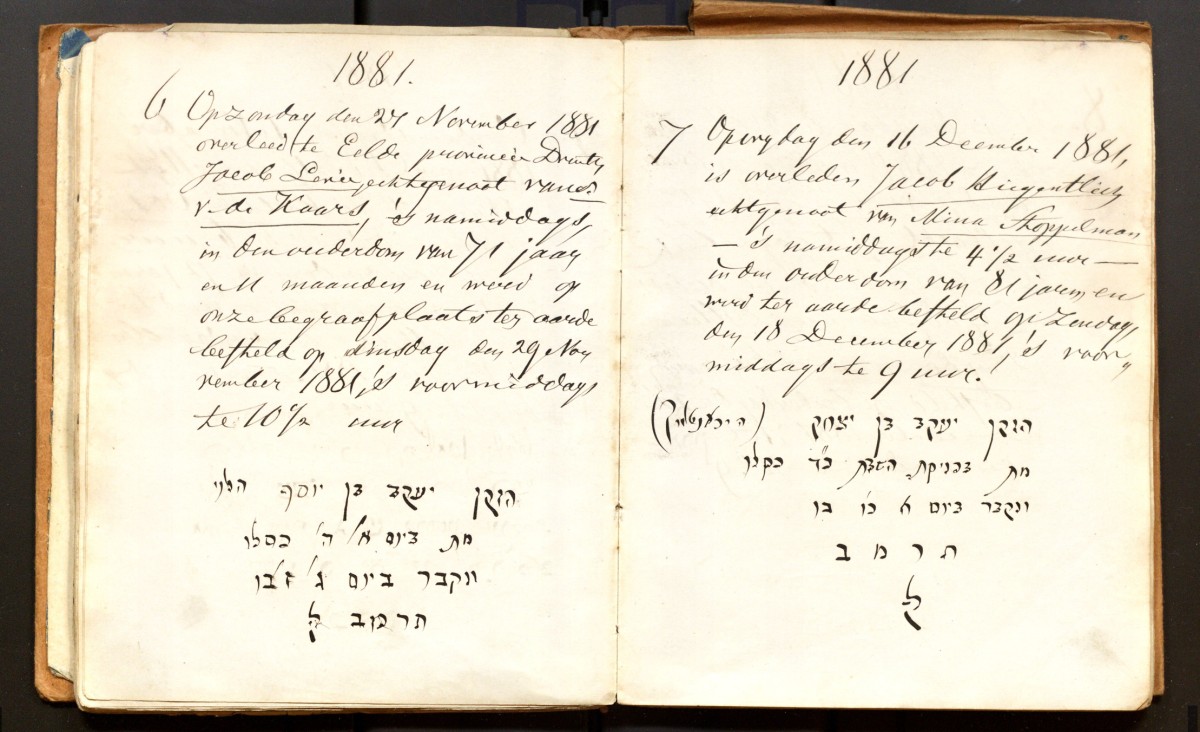 1881.
6 Op zondag den 27 November 1881
overleed te Eelde provincie Drenthe
Jacob Levie, echtgenoot van
v. de Kaars, 's namiddags,
in den ouderdom van 71 jaar
en 11 maanden en werd op
onze begraafplaats ter aarde
besteld op dinsdag den 29 Nov
vember 1881, 's voormiddags
te 10 1/2 uur
הזקן יעקב בן יוסף הלוי
מת ביום א' ה' כסלו
ונקבר ביום ג' ז' בו
תרמב ל
1881
7 Op vrydag den 16 December 1881,
is overleden Jacob Hirgentlich
echtgenoot van Mina Stoppelman
— 's namiddags te 4 1/2 uur —
in den ouderdom van 81 jaren en
werd ter aarde besteld op Zondag,
den 18 December 1881, 's voor„
middags te 9 uur.
הזקן יעקב בן יצחק
מת בכניסת השבת כ"ד כסלו
ונקבר ביום א כו בו
ת ר מ ב
ל